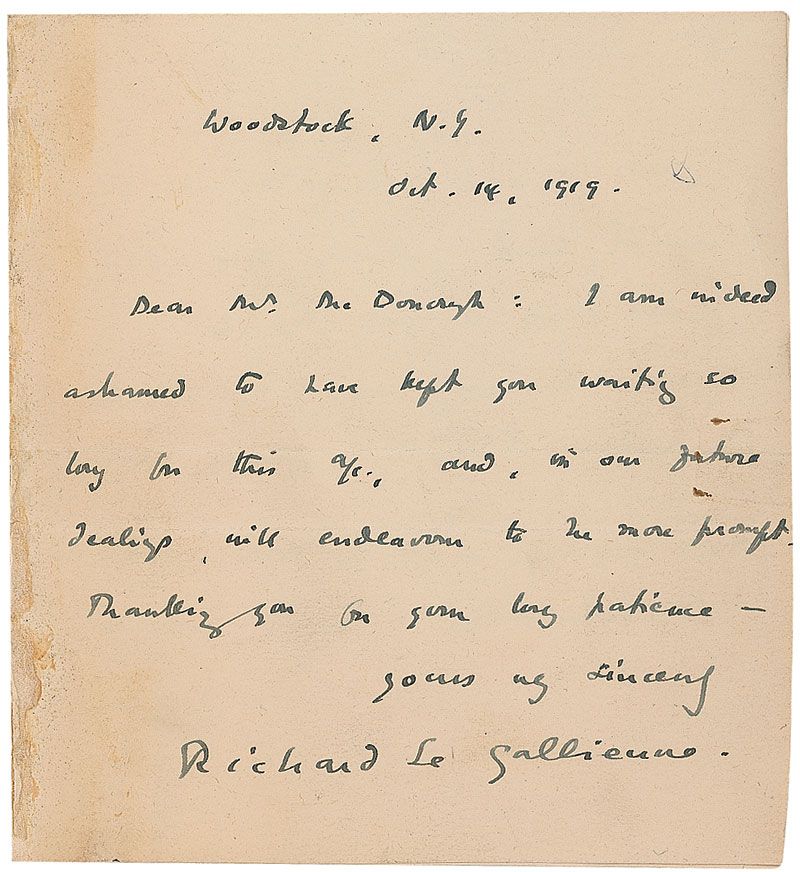 Woodstock, N.Y.
Oct. 14, 1919.
Dear Mr. McDonough : I am indeed
ashamed to have kept you waiting so
long for this a/c., and, in our future
dealings, will endeavour to be more prompt.
Thanking you for your long patience —
yours vy sincerely
Richard Le Gallienne.